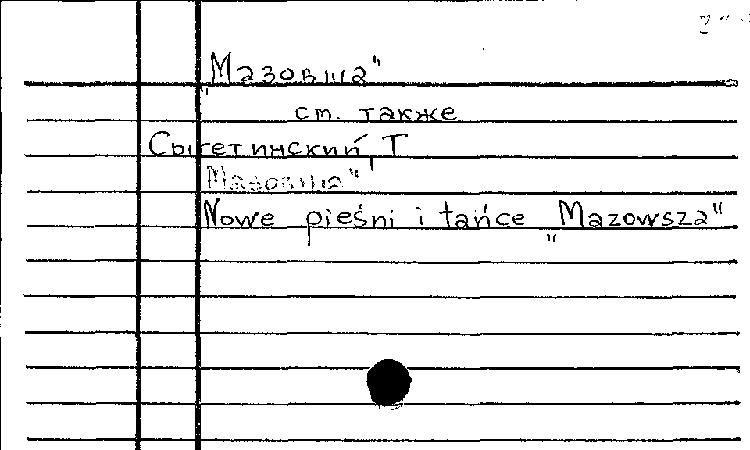 „Мазовша"
см. также
Сыгетинский, Т
Мазовша"
Nowe pieśni i tańce „Mazowsza"